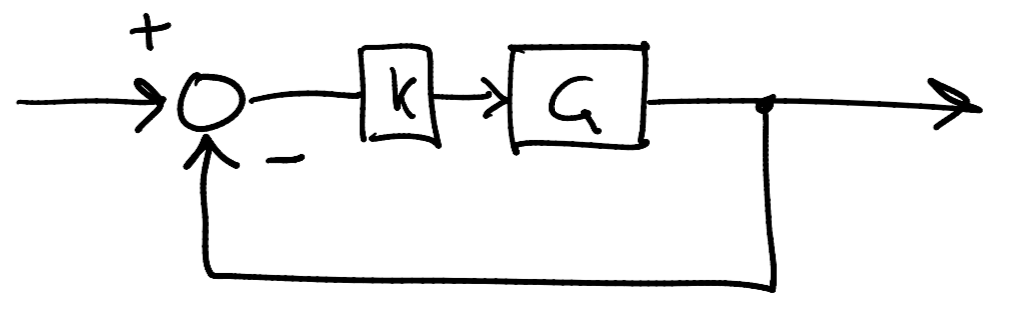 +
K G
-